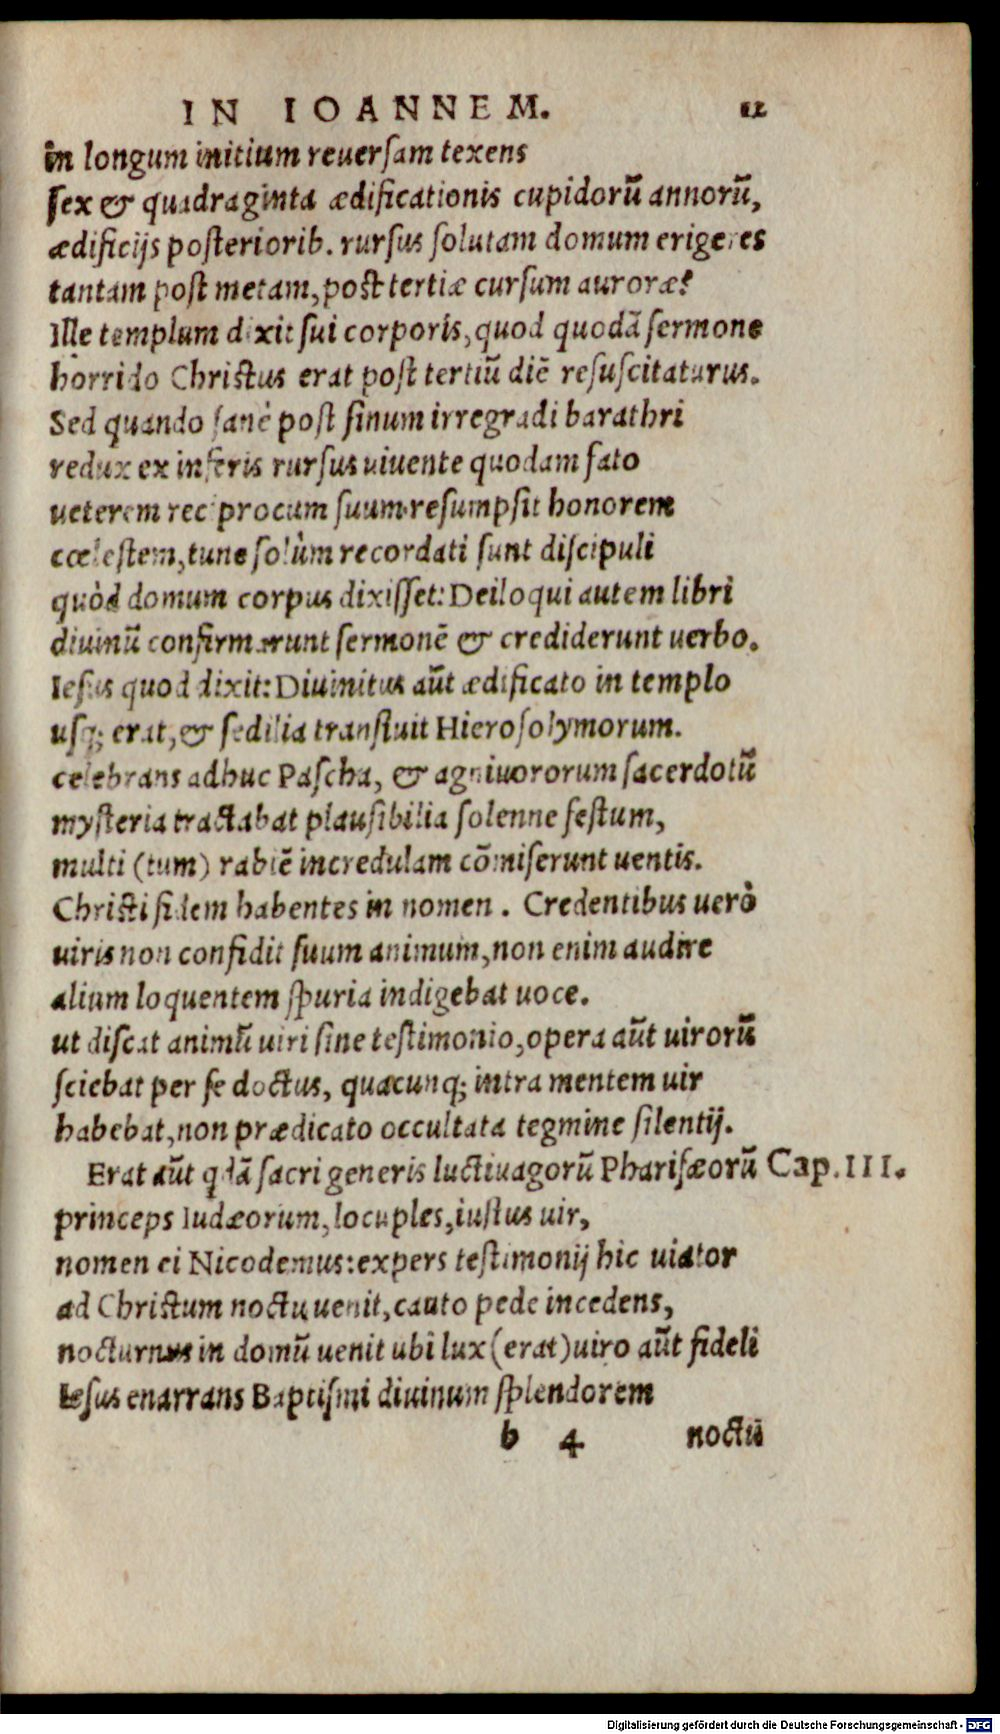 IN IOANNEM. 12
in longum initium reuersam texens
sex & quadraginta ædificationis cupidorũ annorũ,
ædificijs posteriorib. rursus solutam domum erigeres
tantam post metam, post tertiæ cursum auroræ?
Ille templum dixit sui corporis, quod quodã sermone
horrido Christus erat post tertiũ diẽ resuscitaturus.
Sed quando sanè post sinum irregradi barathri
redux ex inferis rursus uiuente quodam fato
ueterem reciprocum suum resumpsit honorem
cœlestem, tunc solùm recordati sunt discipuli
quòd domum corpus dixisset: Deiloqui autem libri
diuinũ confirmarunt sermonẽ & crediderunt uerbo.
Iesus quod dixit: Diuinitus aũt ædificato in templo
usq; erat, & sedilia transtuit Hierosolymorum.
celebrans adhuc Pascha, & agniuororum sacerdotũ
mysteria tractabat plausibilia solenne festum,
multi (tum) rabiẽ incredulam cõmiserunt uentis.
Christi fidem habentes in nomen. Credentibus uerò
uiris non confidit suum animum, non enim audire
alium loquentem spuria indigebat uoce.
ut discat animũ uiri sine testimonio, opera aũt uirorũ
sciebat per se doctus, quacunq; intra mentem uir
habebat, non prædicato occultata tegmine silentij.
Erat aũt qdã sacri generis luctiuagorũ Pharisæorũ Cap. III.
princeps Iudæorum, locuples, iustus uir,
nomen ei Nicodemus: expers testimonij hic uiator
ad Christum noctu uenit, cauto pede incedens,
nocturnus in domũ uenit ubi lux (erat) uiro aũt fideli
Iesus enarrans Baptismi diuinum splendorem
b 4 noctũ
Digitalisierung gefördert durch die Deutsche Forschungsgemeinschaft - DFG